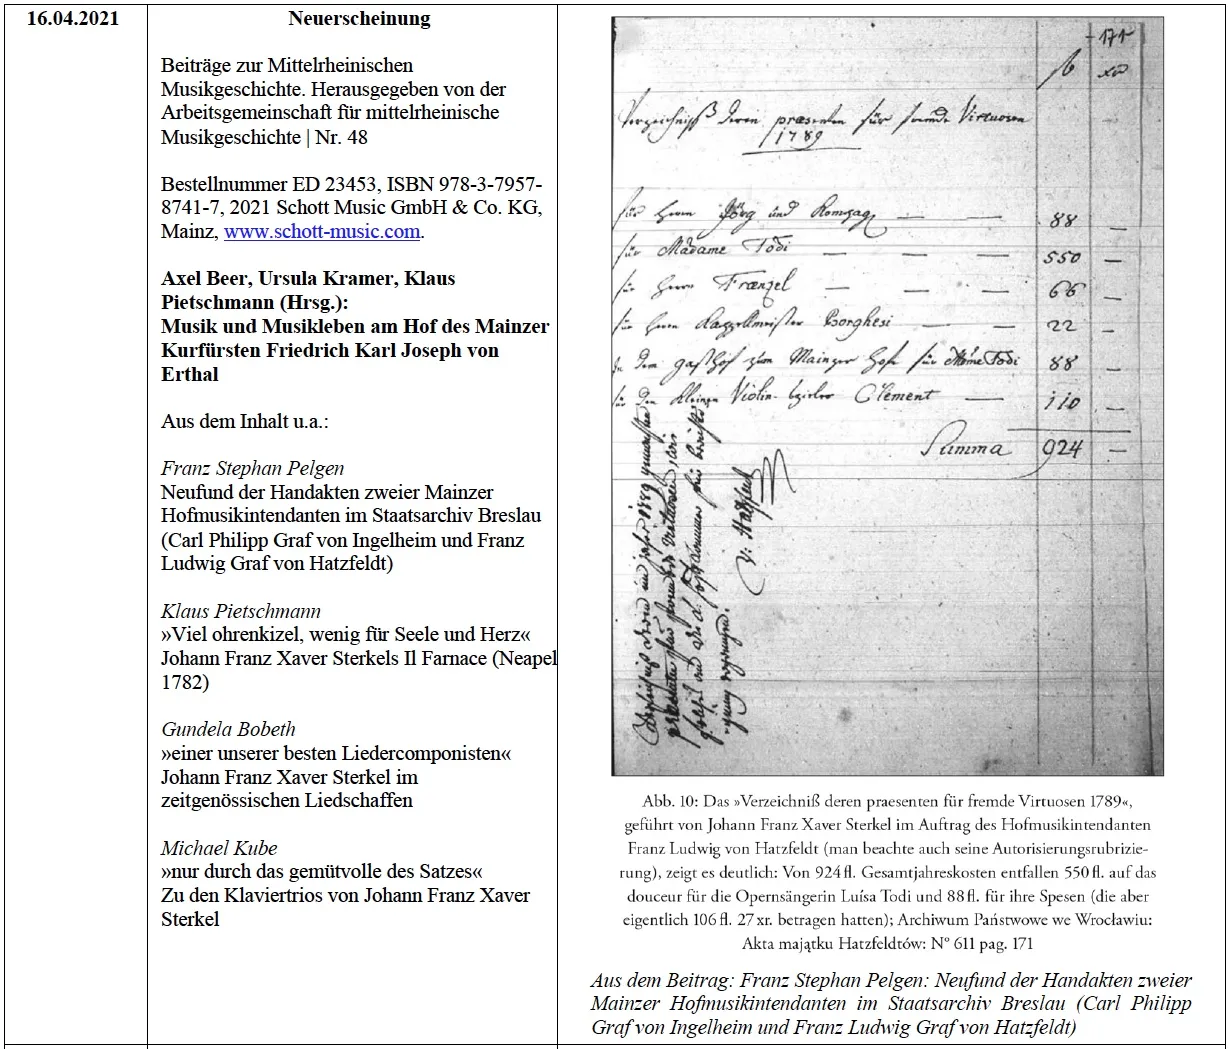 16.04.2021
Neuerscheinung
Beiträge zur Mittelrheinischen
Musikgeschichte. Herausgegeben von der
Arbeitsgemeinschaft für mittelrheinische
Musikgeschichte | Nr. 48
Bestellnummer ED 23453, ISBN 978-3-7957-
8741-7, 2021 Schott Music GmbH & Co. KG,
Mainz, www.schott-music.com.
Axel Beer, Ursula Kramer, Klaus
Pietschmann (Hrsg.):
Musik und Musikleben am Hof des Mainzer
Kurfürsten Friedrich Karl Joseph von
Erthal
Aus dem Inhalt u.a.:
Franz Stephan Pelgen
Neufund der Handakten zweier Mainzer
Hofmusikintendanten im Staatsarchiv Breslau
(Carl Philipp Graf von Ingelheim und Franz
Ludwig Graf von Hatzfeldt)
Klaus Pietschmann
»Viel ohrenkizel, wenig für Seele und Herz«
Johann Franz Xaver Sterkels Il Farnace (Neapel
1782)
Gundela Bobeth
»einer unserer besten Liedercomponisten«
Johann Franz Xaver Sterkel im
zeitgenössischen Liedschaffen
Michael Kube
»nur durch das gemütvolle des Satzes«
Zu den Klaviertrios von Johann Franz Xaver
Sterkel
171
Verzeichniß deren praesenten für fremde Virtuosen
1789
für Herrn und 88
für Madame Todi 550
für Herrn Fraenzel 66
für Herrn Kappellmeister Borghesi 22
dem gasthof zum Mainzer Hofe für Mdme Todi 88
für den kleinen Violin Clement 110
Summa 924
v. Hatzfeld
Abb. 10: Das »Verzeichniß deren praesenten für fremde Virtuosen 1789«,
geführt von Johann Franz Xaver Sterkel im Auftrag des Hofmusikintendanten
Franz Ludwig von Hatzfeldt (man beachte auch seine Autorisierungsrubrizie-
rung), zeigt es deutlich: Von 924 fl. Gesamtjahreskosten entfallen 550 fl. auf das
douceur für die Opernsängerin Luísa Todi und 88 fl. für ihre Spesen (die aber
eigentlich 106 fl. 27 xr. betragen hatten); Archiwum Państwowe we Wrocławiu:
Akta majątku Hatzfeldtów: N° 611 pag. 171
Aus dem Beitrag: Franz Stephan Pelgen: Neufund der Handakten zweier
Mainzer Hofmusikintendanten im Staatsarchiv Breslau (Carl Philipp
Graf von Ingelheim und Franz Ludwig Graf von Hatzfeldt)